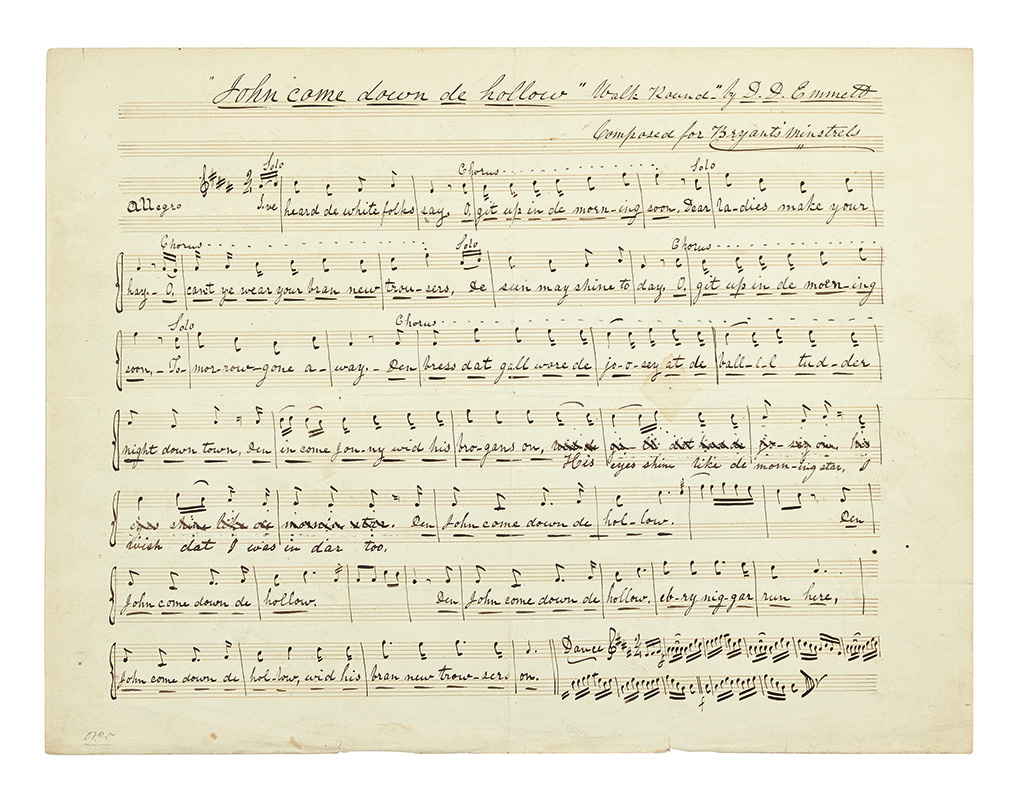 "John come down de hollow" "Walk Round" by D. D. Emmett
Composed for Bryant's Minstrels
Solo Chorus Solo
Allegro I've heard de white folks say, O, git up in de morn-ing soon, Dear la-dies make your
Chorus Solo Chorus
hay. - O, can't ye wear your bran new trou-sers, De sun may shine to day. O, git up in de morn-ing
Solo Chorus
soon, - To- mor-row-gone a-way. - Den bress dat gall wore de jo-o-sey at de ball-l-l tud-der
night down town, Den in come Jon-ny wid his bro-gans on,
His eyes shine like de morn-ing star, I
shine like de Den John come down de hol-low. Den
wish dat I was in dar too.
John come down de hollow. Den John come down de hollow, eb-ry nig-gar run here,
John come down de hol-low, wid his bran new trow-sers on. Dance
over